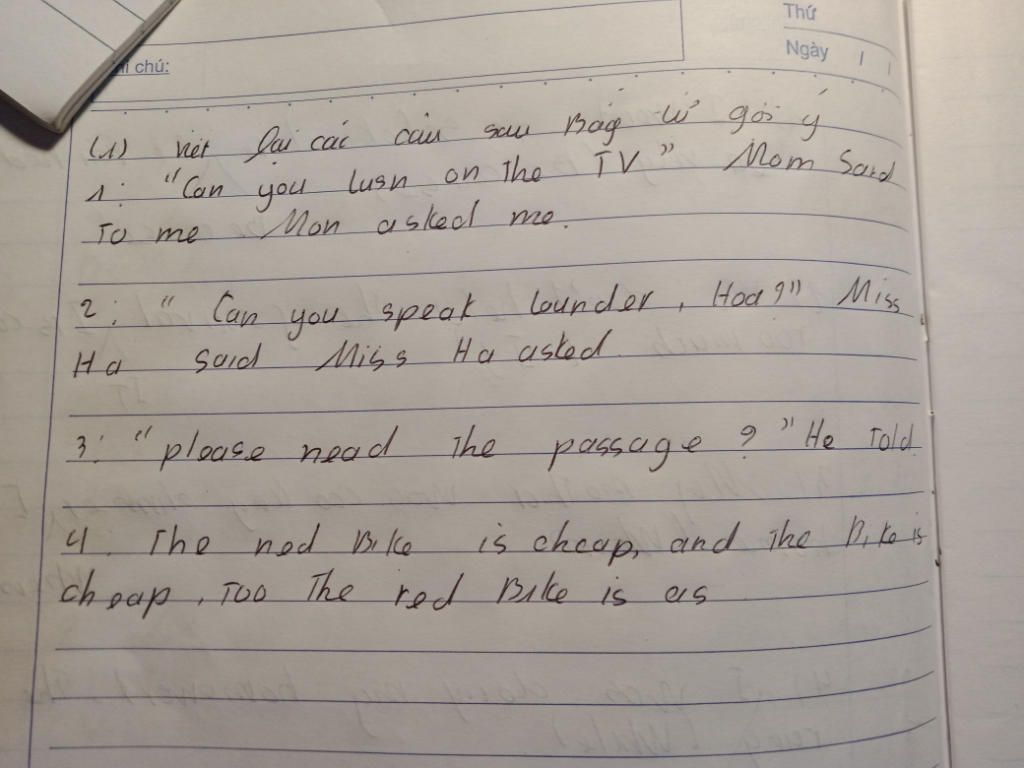 Thứ
Ngày
chú:
(1) viết lại các câu sau Bằg từ gợi ý
1: "Can you lusn on The TV" Mom Said
To me Mon asked me.
2: " Can you speak lounder, Hoa?" Miss
Ha said Miss Ha asked
3: " please nead The passage ? " He Told
4. The ned Bike is cheap, and The Bike is
cheap, Too The red Bike is as